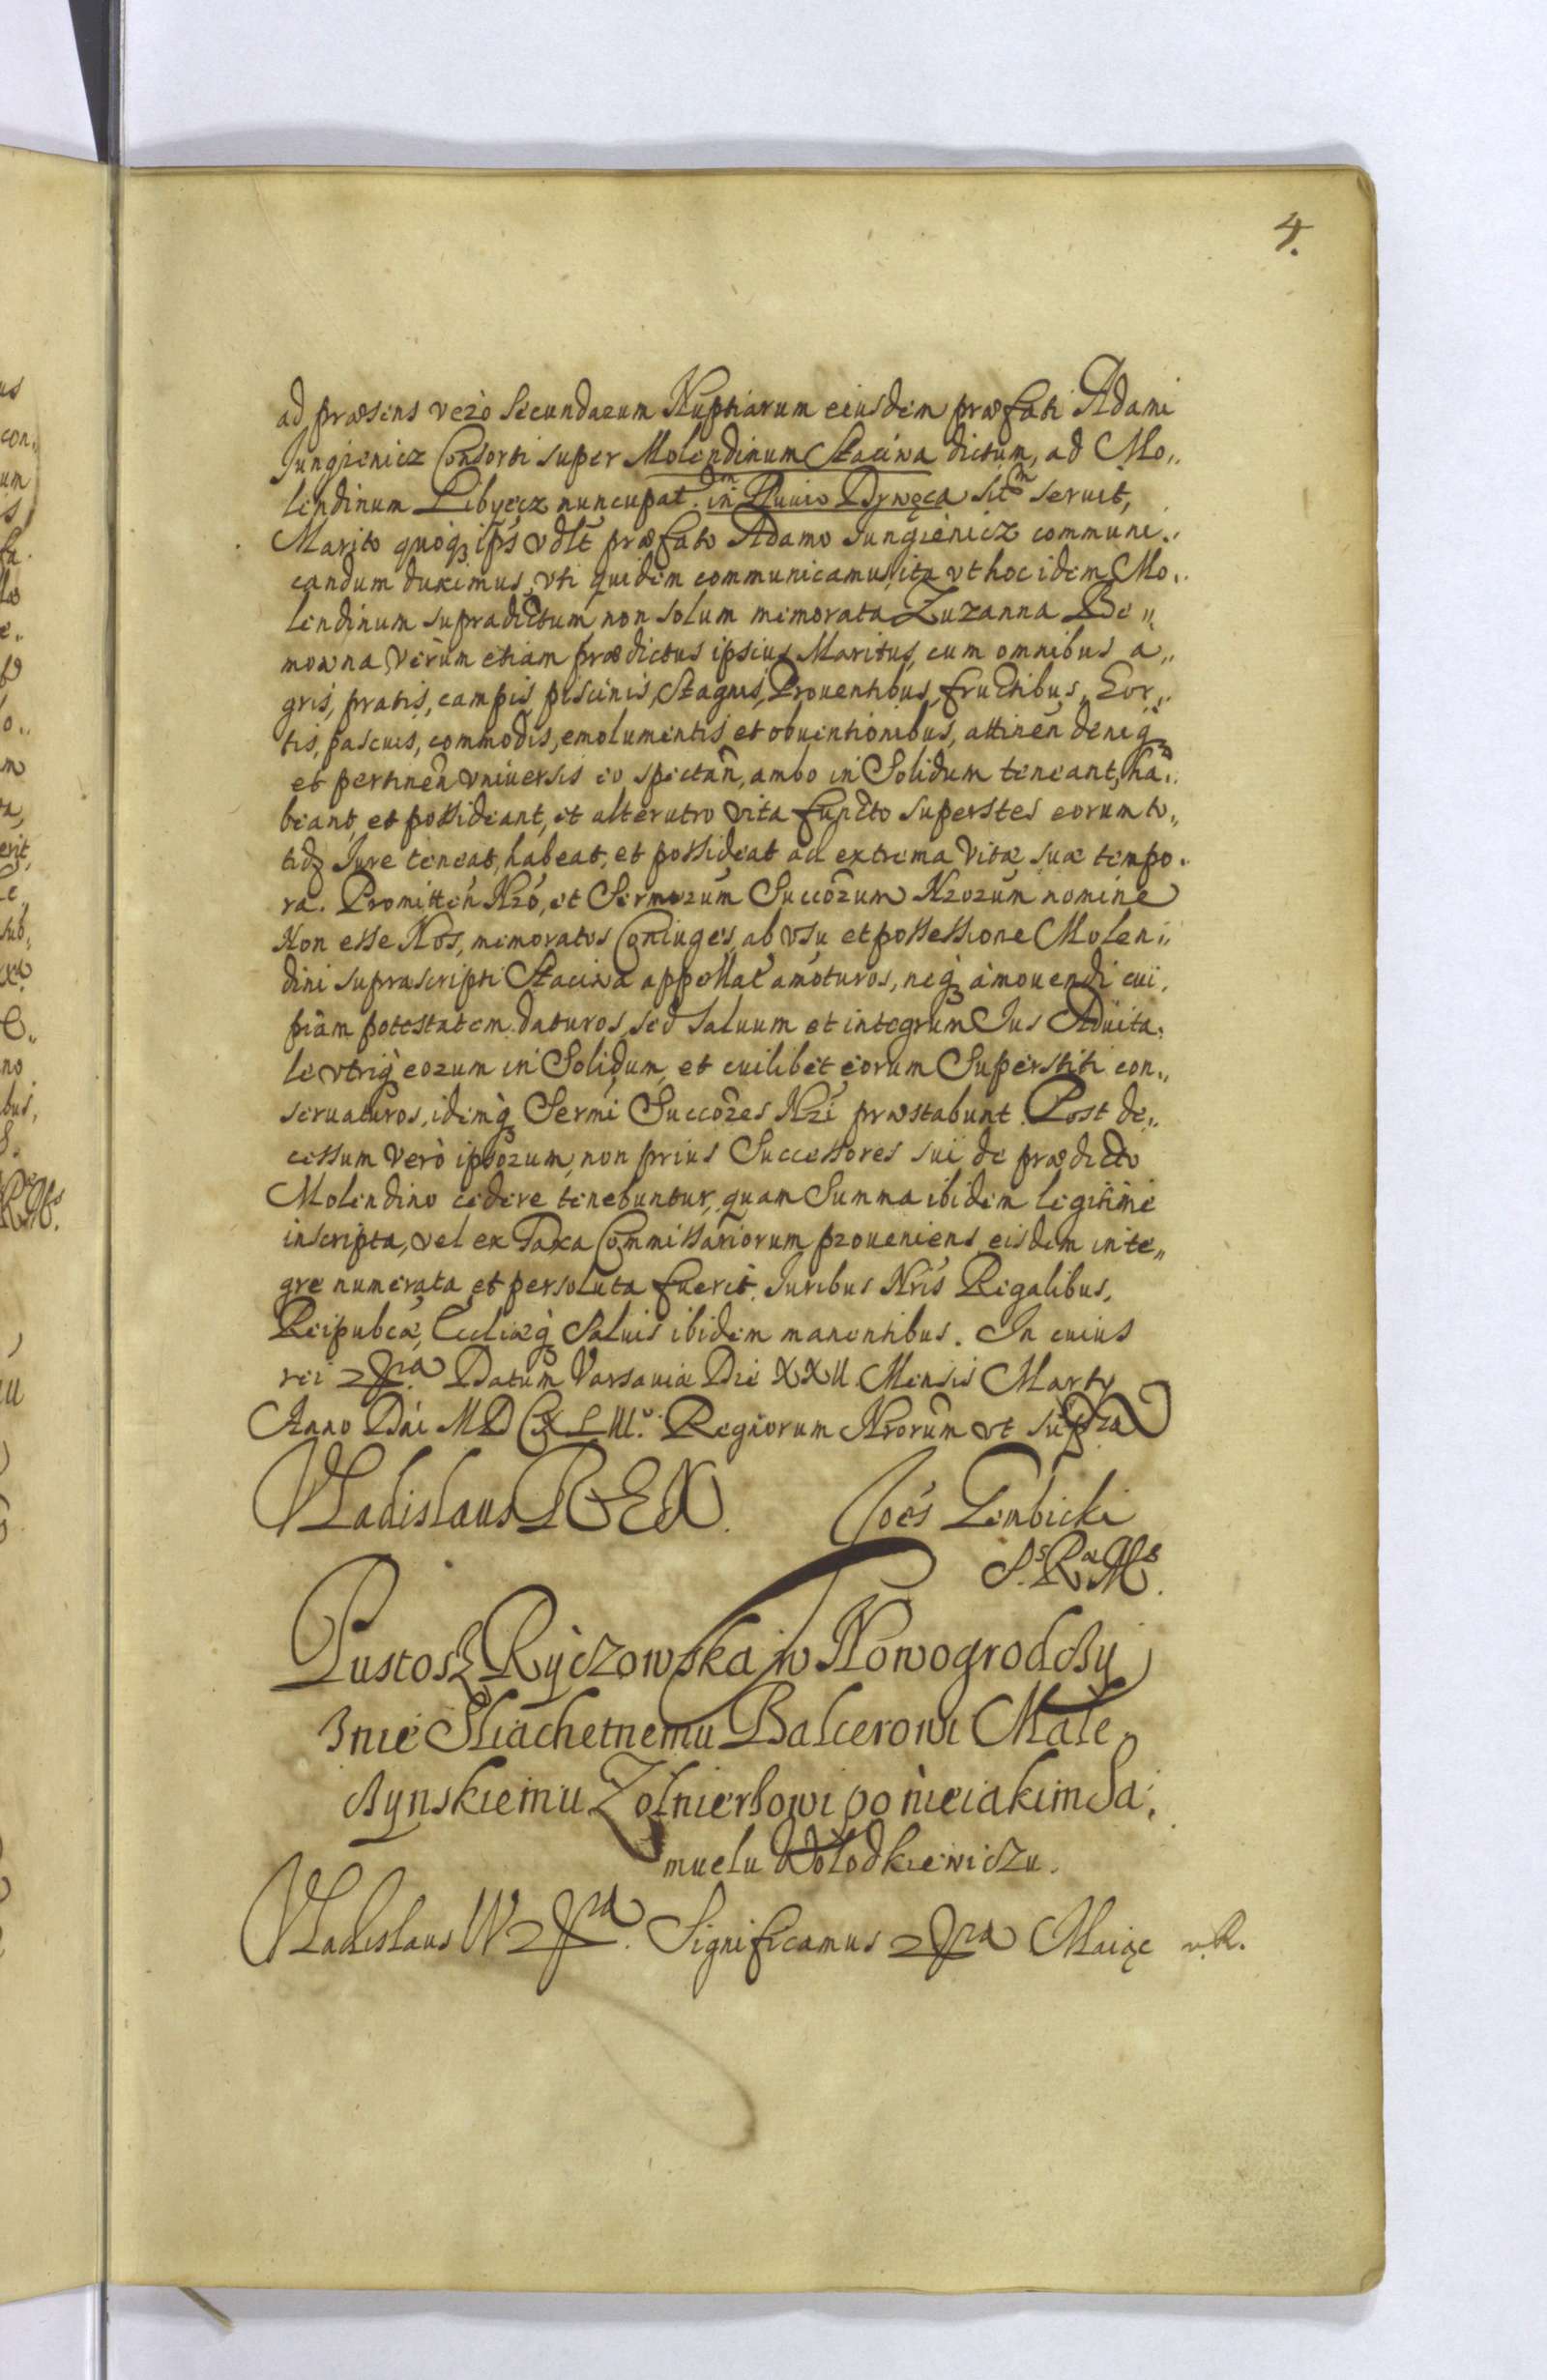 4.
ad præsens verò secundarum Nuptiarum eiusdem præfati Adami
Jungienicz Consorti super Molendinum Stacina dictum, ad Mo„
lendinum Libyecz nuncupat. in Fluuio Drwęca sit seruit,
Marito quoqꝫ ips̃ præfato Adamo Jungienicz communi„
candum duximus, vti quidem communicamus, ita vt hoc idem Mo„
lendinum supradictum non solum memorata Zuzanna Be„
mowna Verùm etiam prædictus ipsius Maritus, cum omnibus a„
gris, pratis, campis, piscinis, Stagnis, Prouentibus, fructibus, Hor„
tis, pascuis, commodis, emolumentis et obuentionibus, attinen̄ deniqꝫ
et pertinen̄ vniuersis eo spectan̄, ambo in Solidum teneant, ha„
beant, et possideant, et alterutro vita functo superstes eorum to„
tidꝫ Jure teneat, habeat, et possideat ad extrema vitæ suæ tempo„
ra. Promitten̄ Nr̃o, et Sermorum Succor̃um Nrorum nomine
Non esse Nos, memoratos Coniuges, ab vsu et possessione Molen„
dini suprascripti Stacina appellat̃ amoturos, neqꝫ amouendi cui„
piam potestatem daturos, sed saluum et integrum Jus Aduita„
le vtriq̃ eorum in Solidum, et cuilibet eorum Superstiti con„
seruaturos, idemqꝫ Sermi Succores Nri præstabunt. Post de„
cessum verò ipsorum, non prius Successores sui de prædicto
Molendino cedere tenebuntur, quam Summa ibidem legitime
inscripta, vel ex Taxa Commissariorum proueniens, eisdem inte„
gre numerata et persoluta fuerit. Juribus Nris Regalibus,
Reipubcæ, Eccliæqꝫ Saluis ibidem manentibus. In cuius
rei Datum Varsauiæ Die XXII Mensis Marty
Anno Dni MDCXLIII. Regnorum Nrorum vt supra
Vladislaus REX. Joẽs Gembicki
S. R. Ms.
Pustosz Ryczowska w Nowogrodczy
znie Sliachetnemu Balcerowi Male„
czynskiemu Zołnierzowi po nieiakim Sa„
muelu Wołodkiewiczu.
Vladislaus IV. Significamus Maiąc